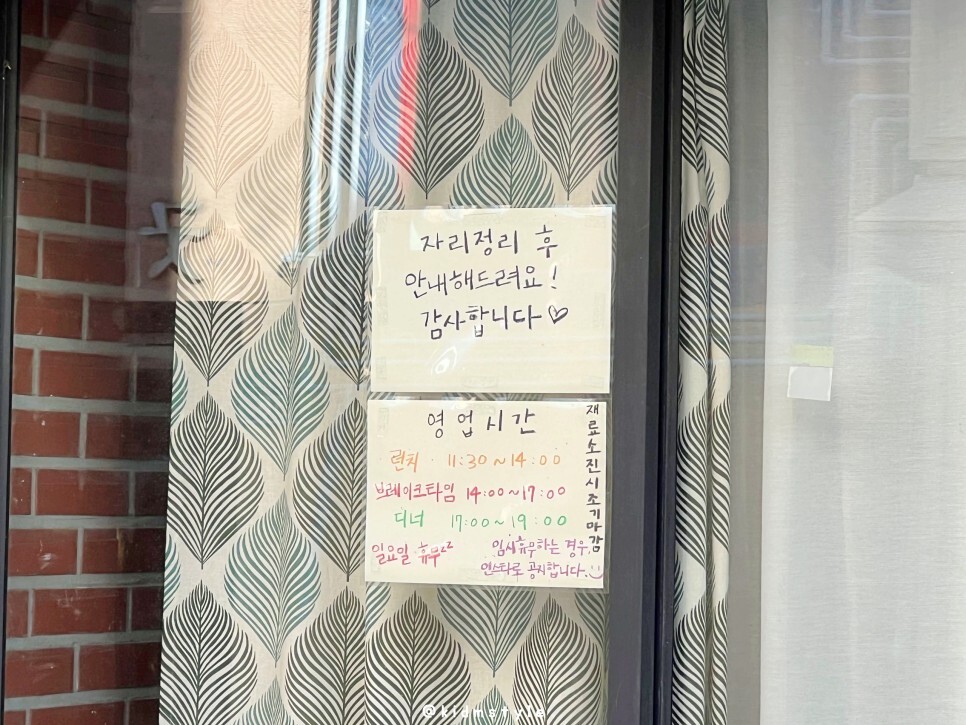 자리정리 후
안내해드려요!
감사합니다♡
영업시간
런치 11:30~14:00
브레이크타임 14:00~17:00
디너 17:00~19:00
일요일 휴무^^
임시휴무하는 경우,
인스타로 공지합니다.:)
재료소진시조기마감
@kidmstyle